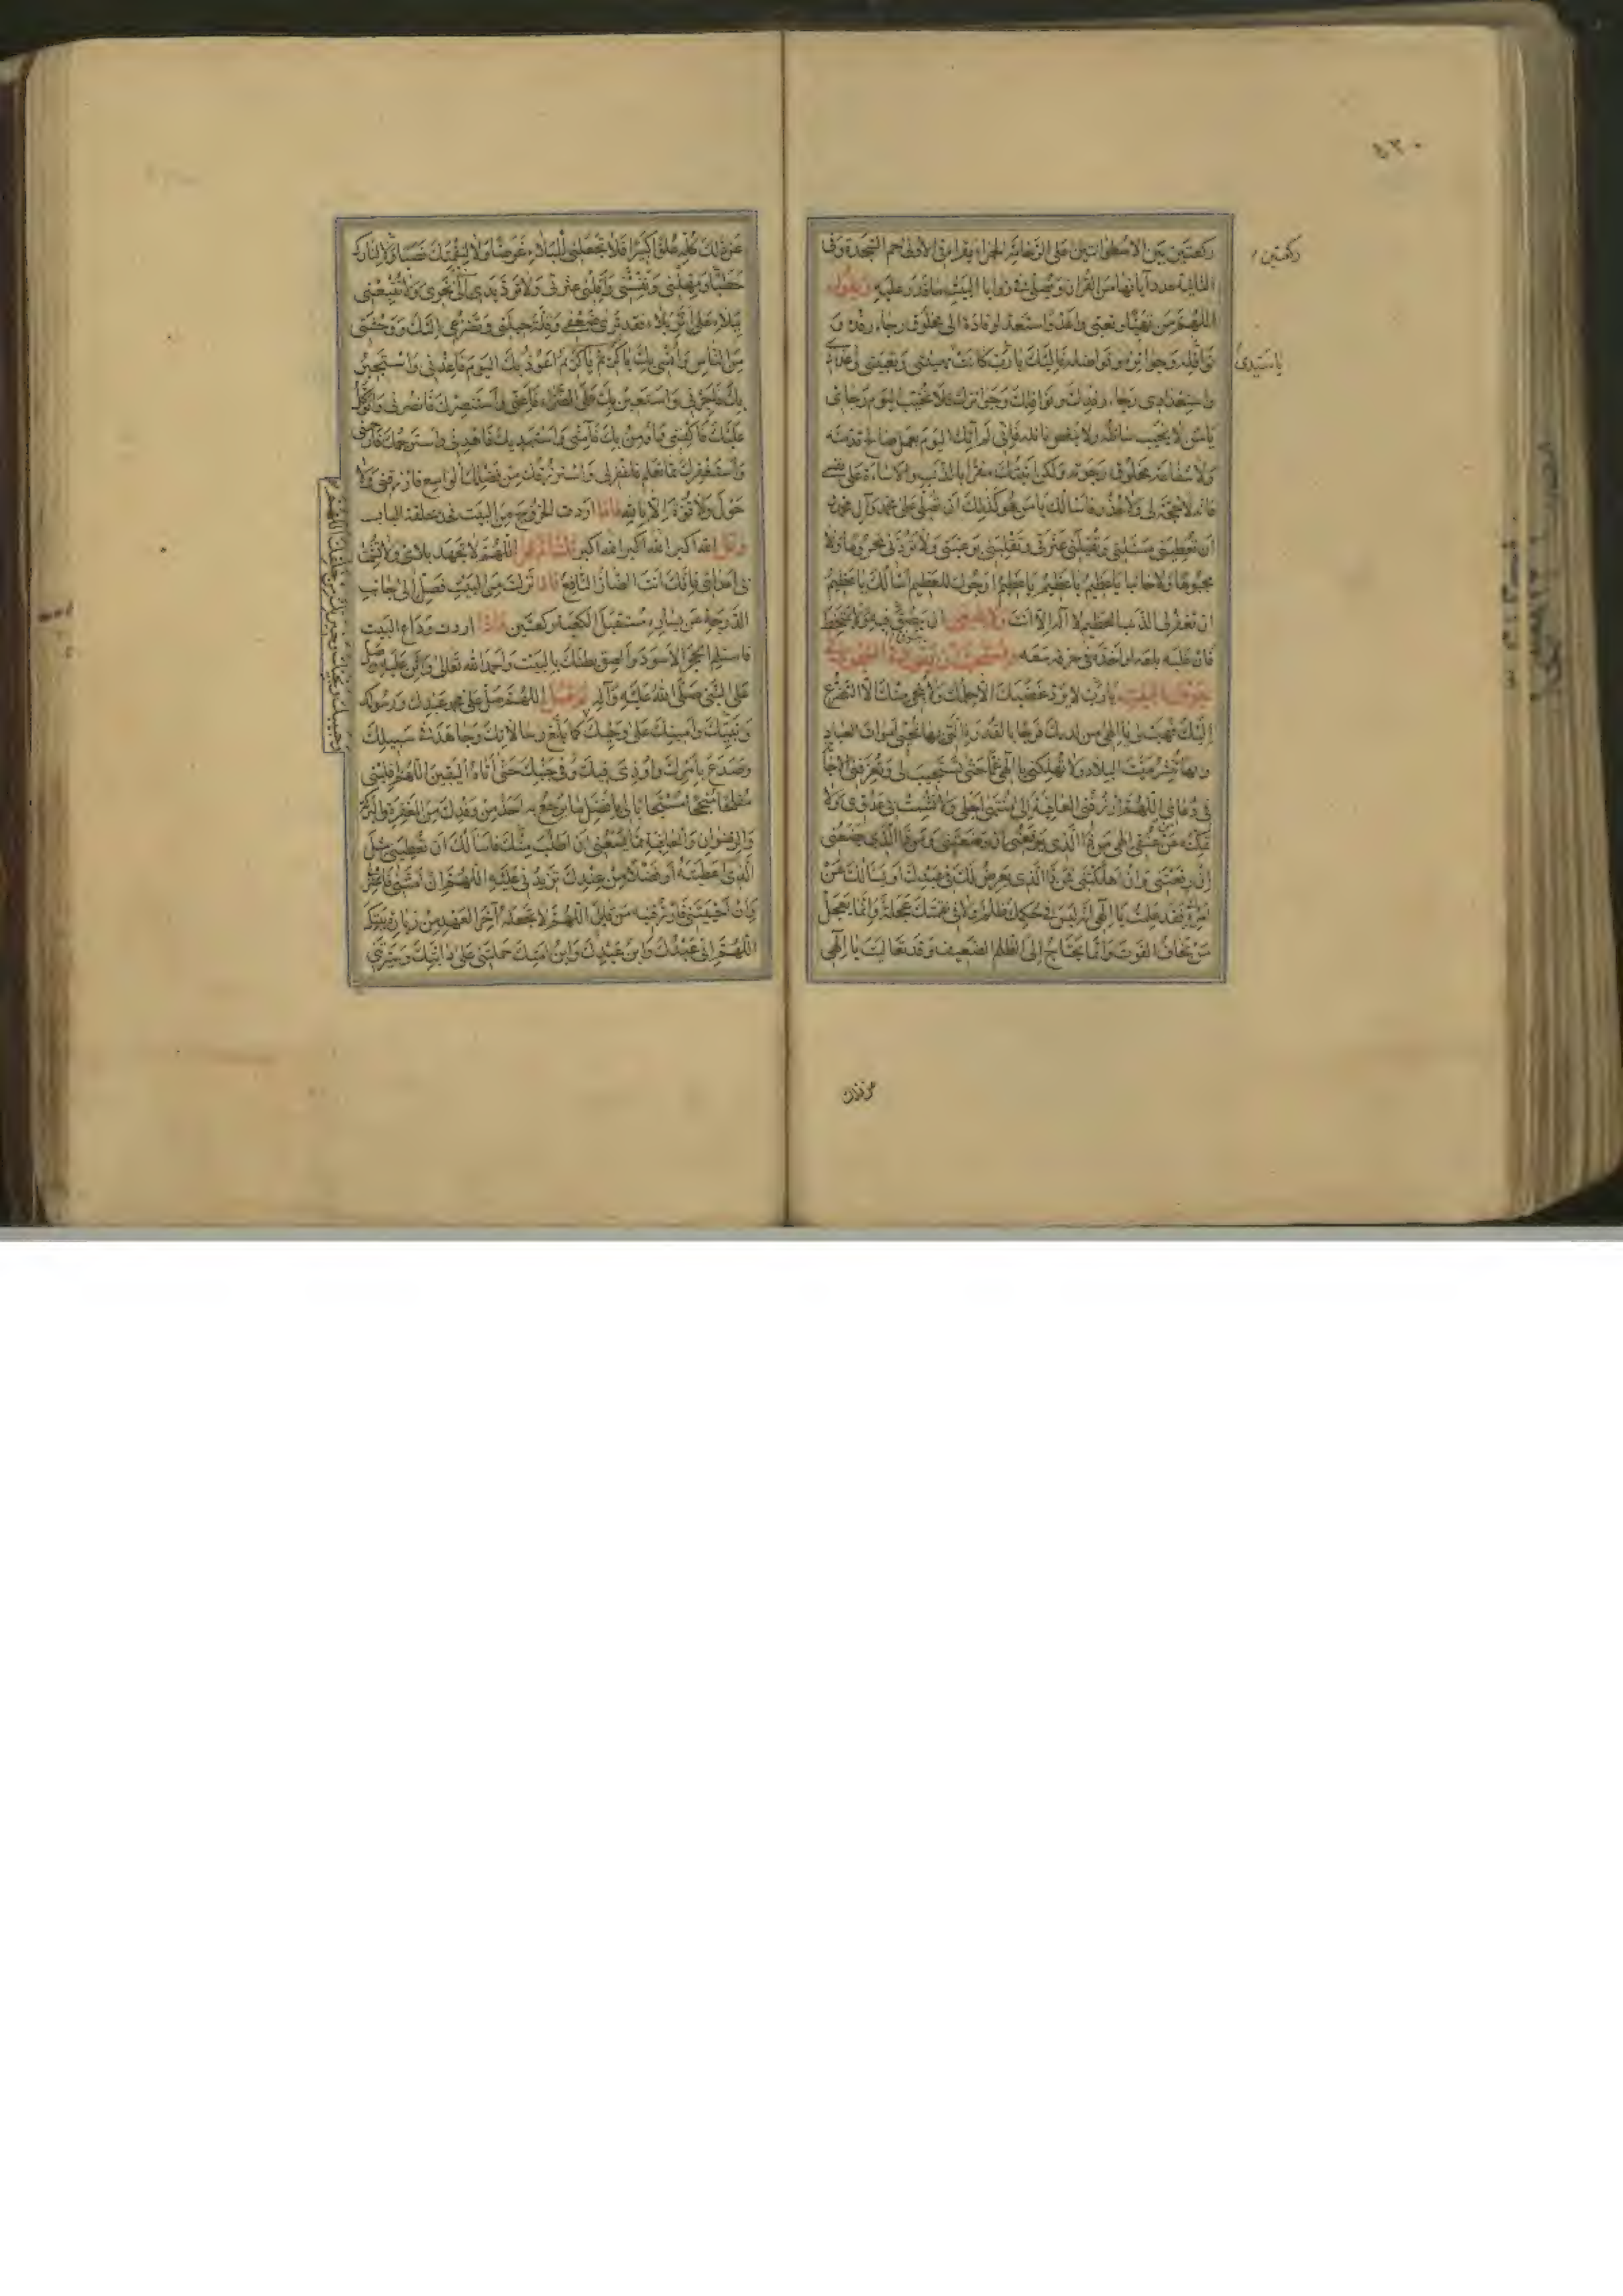 ٤٣٠
ركعتين بين الاسطوانتين على الرخامة الحمراء يقرأ في الأولى حم السجدة وفي
ركعتين
الثانية عدد آياتها من القرآن ويصلي في زوايا البيت ما قدر عليه ويقول
اللهم من تهيأ وتعبى واعد واستعد لوفادة الى مخلوق رجاء رفده و
نوافله وجوائزه وفواضله فاليك يا رب كانت تهيئتي وتعبيتي واعدادي
يا سيدي
واستعدادي رجاء رفدك ونوافلك وجوائزك فلا تخيب اليوم رجائي
يا من لا يخيب سائله ولا ينقص نائله فإني لم آتك اليوم بعمل صالح قدمته
ولا شفاعة مخلوق رجوته ولكني اتيتك مقرا بالذنب والاساءة على نفسي
فانه لا حجة لي ولا عذر فاسالك يا من هو كذلك ان تصلي على محمد وآل محمد و
ان تعطيني مسئلتي وتقيلني عثرتي وتقلبني برغبتي ولا تردني محروما ولا
مجبوها ولا خائبا يا عظيم يا عظيم يا عظيم ارجوك للعظيم اسالك يا عظيم
ان تغفر لي الذنب العظيم لا اله الا انت ولا ينبغي ان يبصق فيه ولا يمتخط
فان غلبه بلعه او اخذه في خرقة معه
يا رب لا يرد غضبك الا حلمك ولا ينجي منك الا التضرع
إليك فهب لي يا الهي من لدنك فرجا بالقدرة التي بها تحيي اموات العباد
وبها تنشر ميت البلاد ولا تهلكني يا الهي غما حتى تستجيب لي وتعرفني الاجابة
في دعائي اللهم ارزقني العافية إلى منتهى اجلي ولا تشمت بي عدوي ولا
تمكنه من عنقي الهي من ذا الذي يرفعني ان وضعتني ومن ذا الذي يضعني
إن رفعتني وان اهلكتني فمن ذا الذي يعرض لك في عبدك او يسألك عن
امره فقد علمت يا الهي انه ليس في حكمك ظلم ولا في نقمتك عجلة وإنما يعجل
من يخاف الفوت وانما يحتاج إلى الظلم الضعيف وقد تعاليت يا إلهي
عن ذلك
عن ذلك كله علوا كبيرا فلا تجعلني للبلاء غرضا ولا لنقمتك نصبا ولا للنارك
حطبا ومهلني ونفسني وأقلني عثرتي ولا ترد يدي الى نحري ولا تتبعني
ببلاء على اثر بلاء فقد ترى ضعفي وقلة حيلتي وتضرعي إليك ووحشتي
من الناس وانسي بك يا كريم يا كريم اعوذ بك اليوم فاعذني واستجير
بك فاجرني واستعين بك على الضراء فاعني واستنصرك فانصرني واتوكل
عليك فاكفني واومن بك فآمني واستهديك فاهدني واسترحمك فارحمني
واستغفرك مما تعلم فاغفر لي واسترزقك من فضلك الواسع فارزقني ولا
حول ولا قوة إلا بالله فاذا اردت الخروج من البيت فخذ بحلقة الباب
وقل الله اكبر الله اكبر الله اكبر ثلثا ثم قل اللهم لا تجهد بلائي ولا تشمت
بي اعدائي فانك انت الضار النافع فاذا نزلت من البيت فصل إلى جانب
الدرجة عن يساره مستقبل الكعبة ركعتين فاذا اردت وداع البيت
فاستلم الحجر الاسود والصق بطنك بالبيت واحمد الله تعالى واثن عليه وصل
على النبي صلى الله عليه وآله ثم قل اللهم صل على محمد عبدك ورسولك
ونبيك وامينك
وحبيبك ونجيك وخيرتك من خلقك اللهم
على وحيك كما بلغ رسالاتك وجاهد في سبيلك
وصدع بامرك واوذي فيك وفي جنبك حتى أتاه اليقين اللهم اقلبني
مفلحا منجحا مستجابا لي بافضل ما يرجع به احد من وفدك من المغفرة والبركة
والرضوان والعافية مما يسعني ان اطلب منك فاسألك ان تعطيني مثل
الذي اعطيته أو فضلا من عندك تزيدني عليه اللهم ان امتني فاغفر لي
وان احييتني فارزقنيه من قابل اللهم لا تجعله آخر العهد من زيارة بيتك
اللهم اني عبدك وابن عبدك وابن امتك حملتني على دابتك وسيرتني